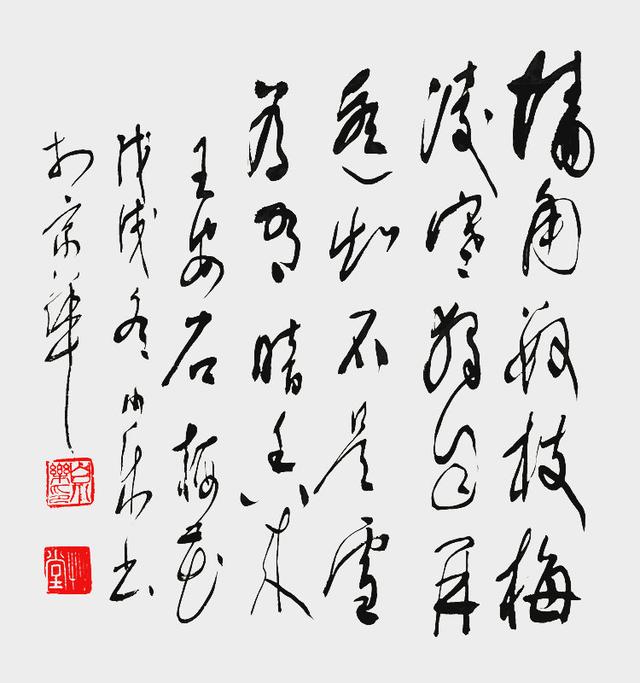 墙角数枝梅
凌寒独自开
遥知不是雪
为有暗香来
王安石梅花
戊戌冬 书
于京华
堂